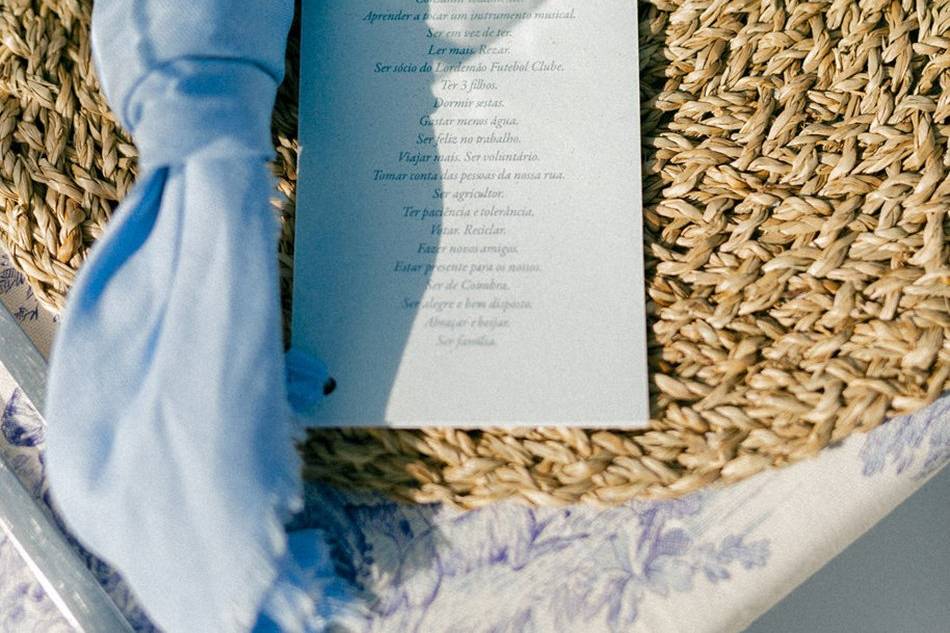 Aprender a tocar um instrumento musical.
Ser em vez de ter.
Ler mais. Rezar.
Ser sócio do Lordemão Futebol Clube.
Ter 3 filhos.
Dormir sestas.
Gastar menos água.
Ser feliz no trabalho.
Viajar mais. Ser voluntário.
Tomar conta das pessoas da nossa rua.
Ser agricultor.
Ter paciência e tolerância.
Votar. Reciclar.
Fazer novos amigos.
Estar presente para os nossos.
Ser de Coimbra.
Ser alegre e bem disposto.
Abraçar e beijar.
Ser família.